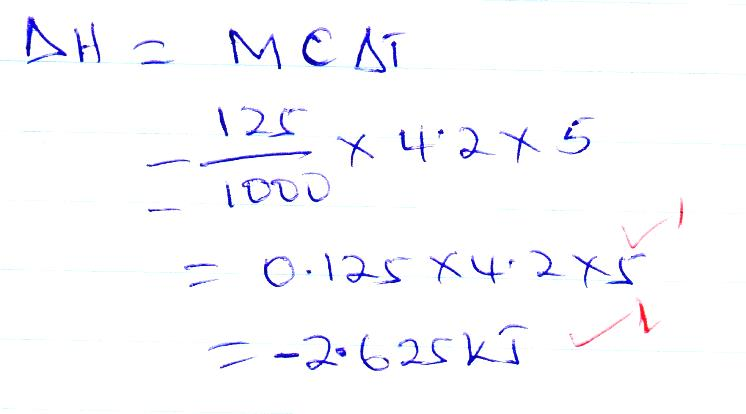 ΔH = MCΔT
= 125/1000 × 4.2 × 5
= 0.125 × 4.2 × 5 ✓ 1
= -2.625 KJ ✓ 1